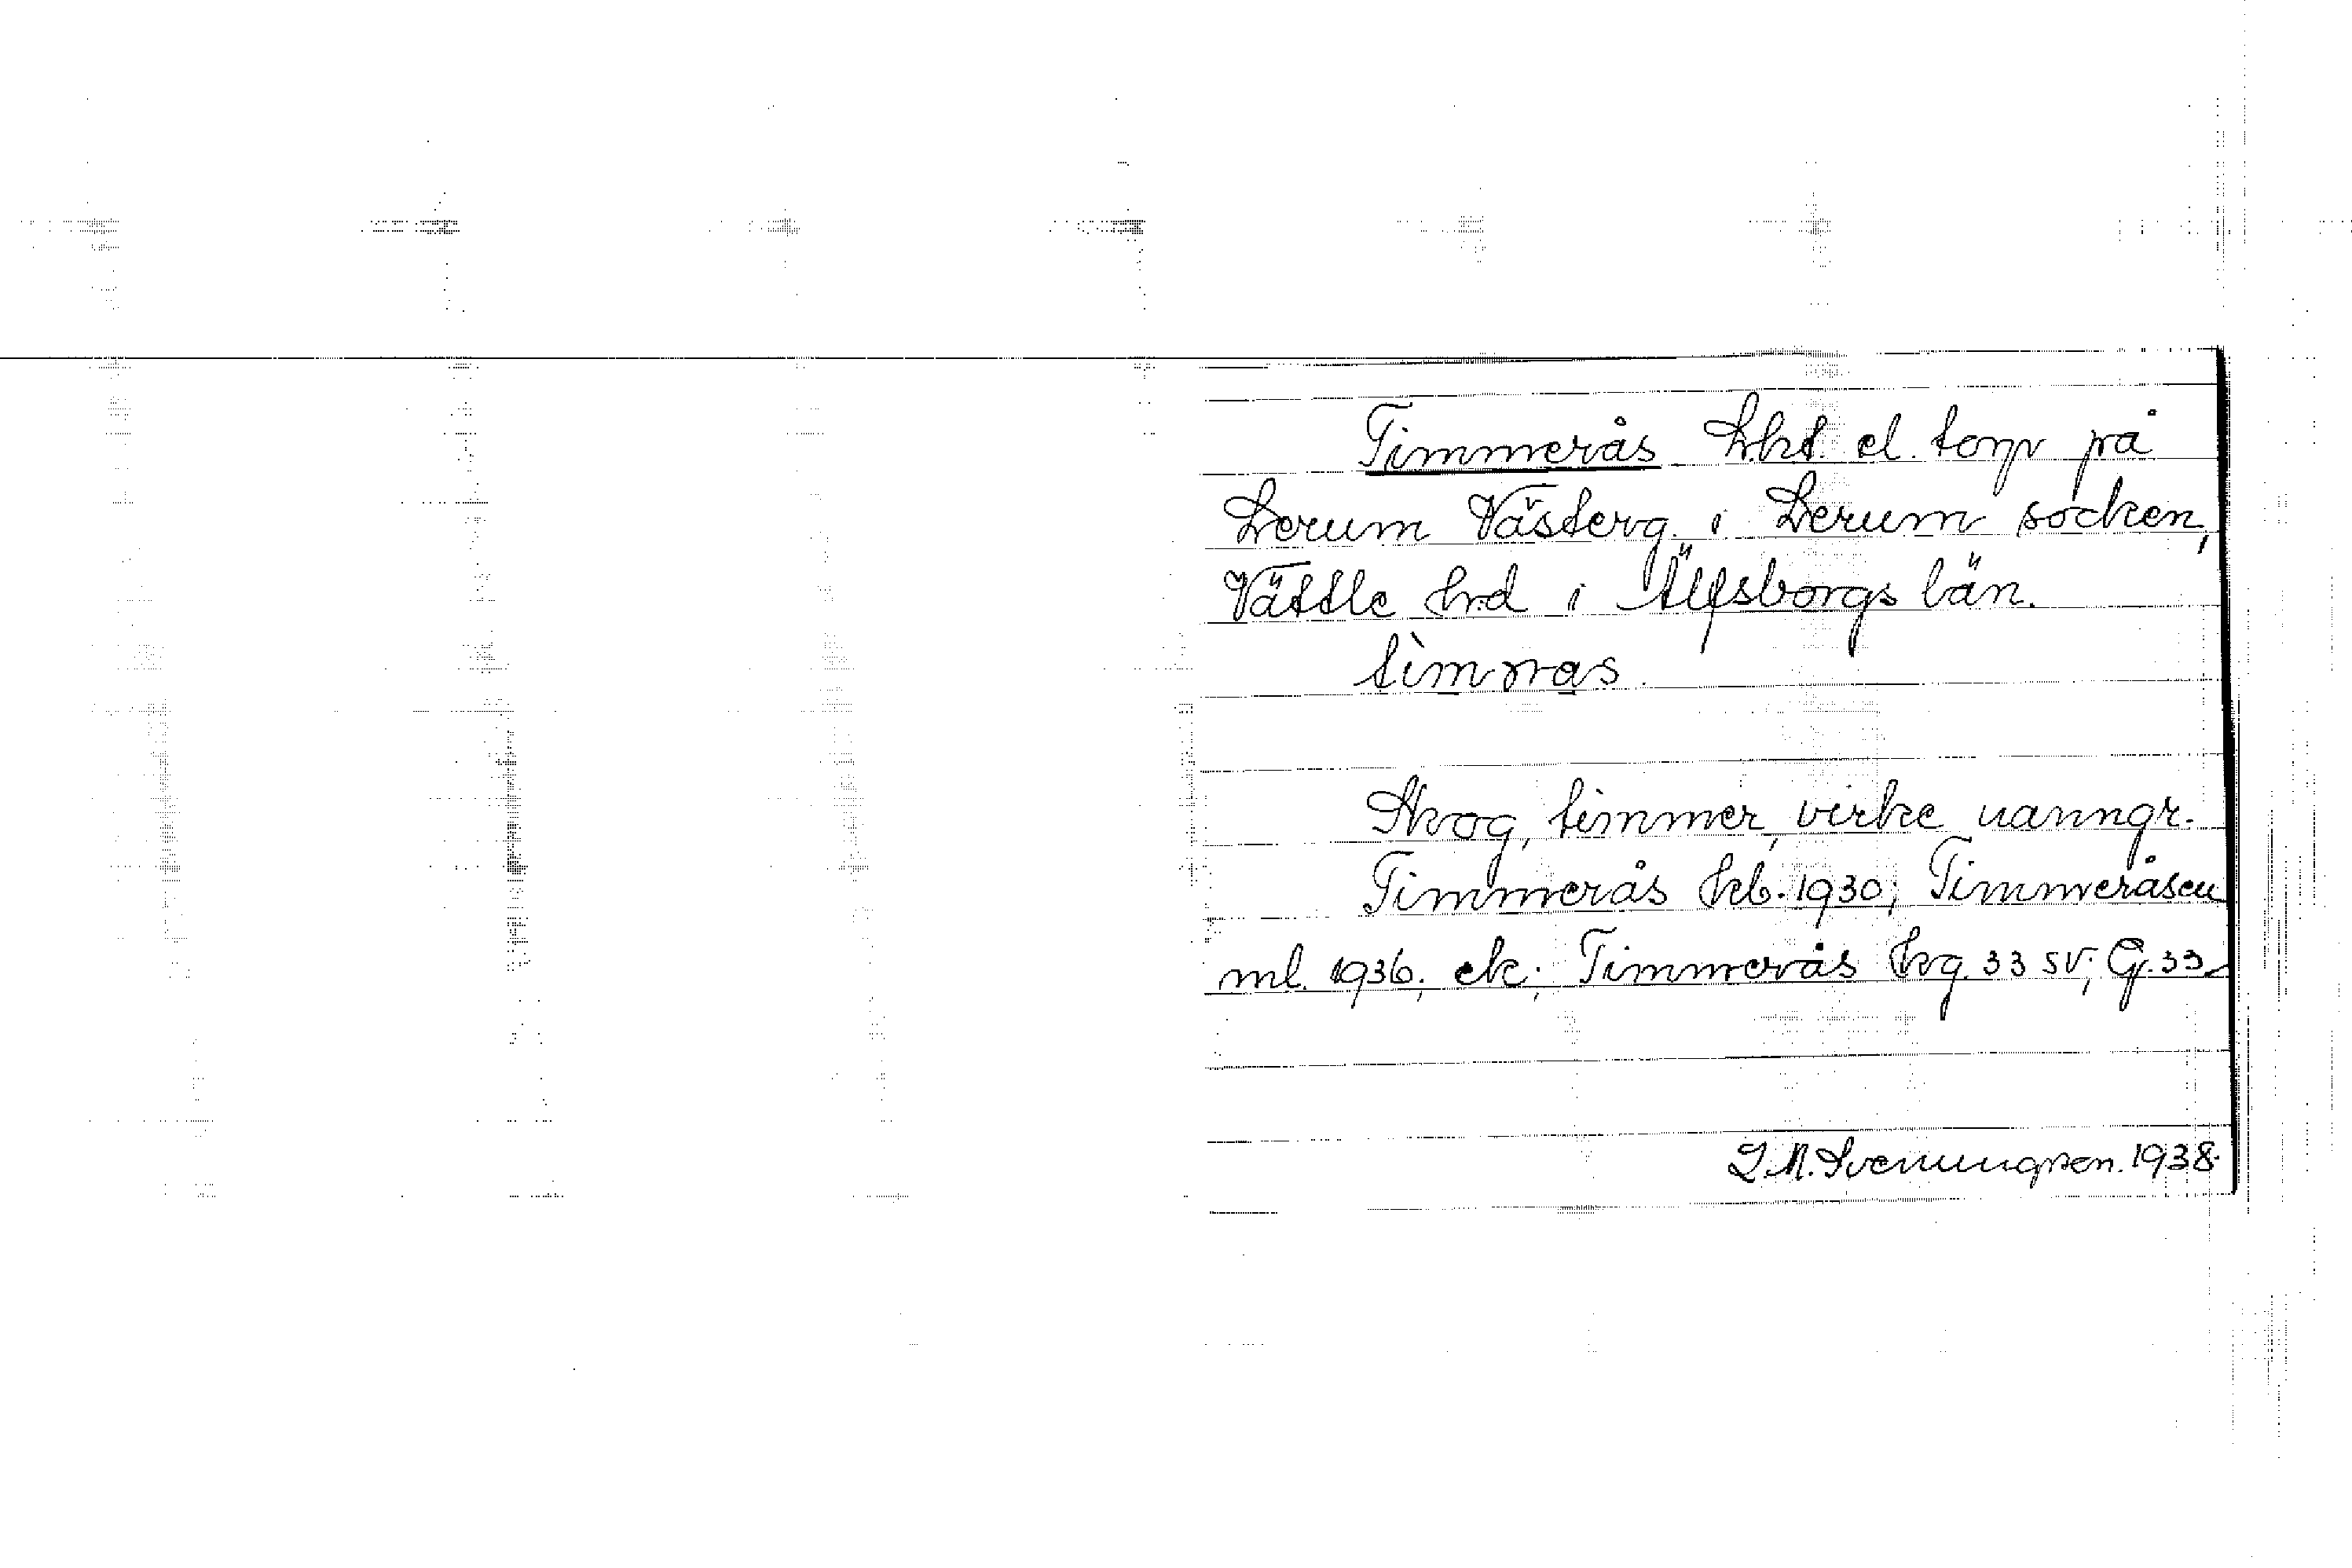 Timmerås Lht. el. torp på
Lerum Västerg. i Lerum socken,
Vättle hrd i Älfsborgs län.
tìmras.
Skog, timmer, virke namngr.
Timmerås kb. 1930; Timmeråsen
ml. 1936; ek; Timmerås kg. 33 SV; G. 33
1938.